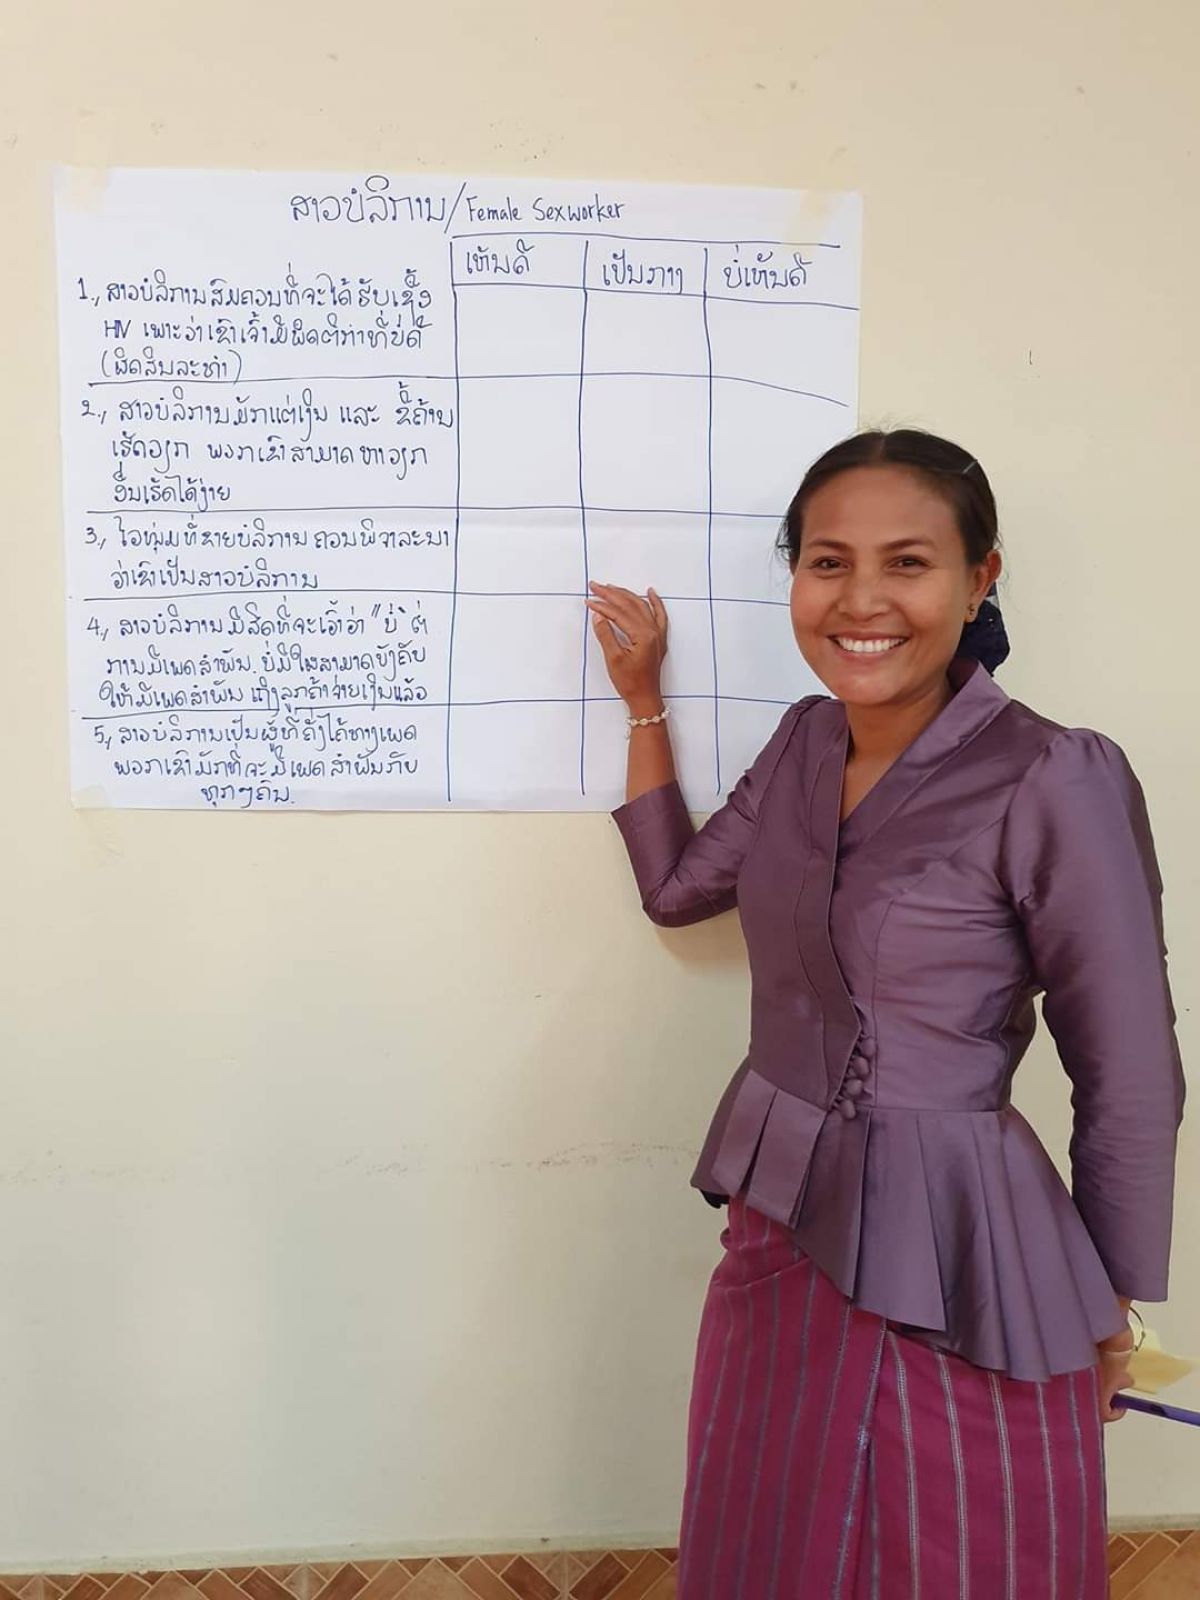 ສາວບໍລິການ/Female Sexworker
ເຫັນດີ ເປັນກາງ ບໍ່ເຫັນດີ
1., ສາວບໍລິການສົມຄວນທີ່ຈະໄດ້ຮັບເຊື້ອ
HIV ເພາະວ່າເຂົາເຈົ້າມີພຶດຕິກຳທີ່ບໍ່ດີ
(ຜິດສິນລະທຳ)
2., ສາວບໍລິການມັກແຕ່ເງິນ ແລະ ຂີ້ຄ້ານ
ເຮັດວຽກ ພວກເຂົາສາມາດຫາວຽກ
ອື່ນເຮັດໄດ້ງ່າຍ
3., ໄວໜຸ່ມທີ່ຂາຍບໍລິການ ຄວນພິຈາລະນາ
ວ່າເຂົາເປັນສາວບໍລິການ
4., ສາວບໍລິການມີສິດທີ່ຈະເວົ້າວ່າ "ບໍ່" ຕໍ່
ການມີເພດສຳພັນ. ບໍ່ມີໃຜສາມາດບັງຄັບ
ໃຫ້ມີເພດສຳພັນ ເຖິງລູກຄ້າຈ່າຍເງິນແລ້ວ
5., ສາວບໍລິການເປັນຜູ້ທີ່ຄັ່ງໄຄ້ທາງເພດ
ພວກເຂົາມັກທີ່ຈະມີເພດສຳພັນກັບ
ທຸກໆຄົນ.